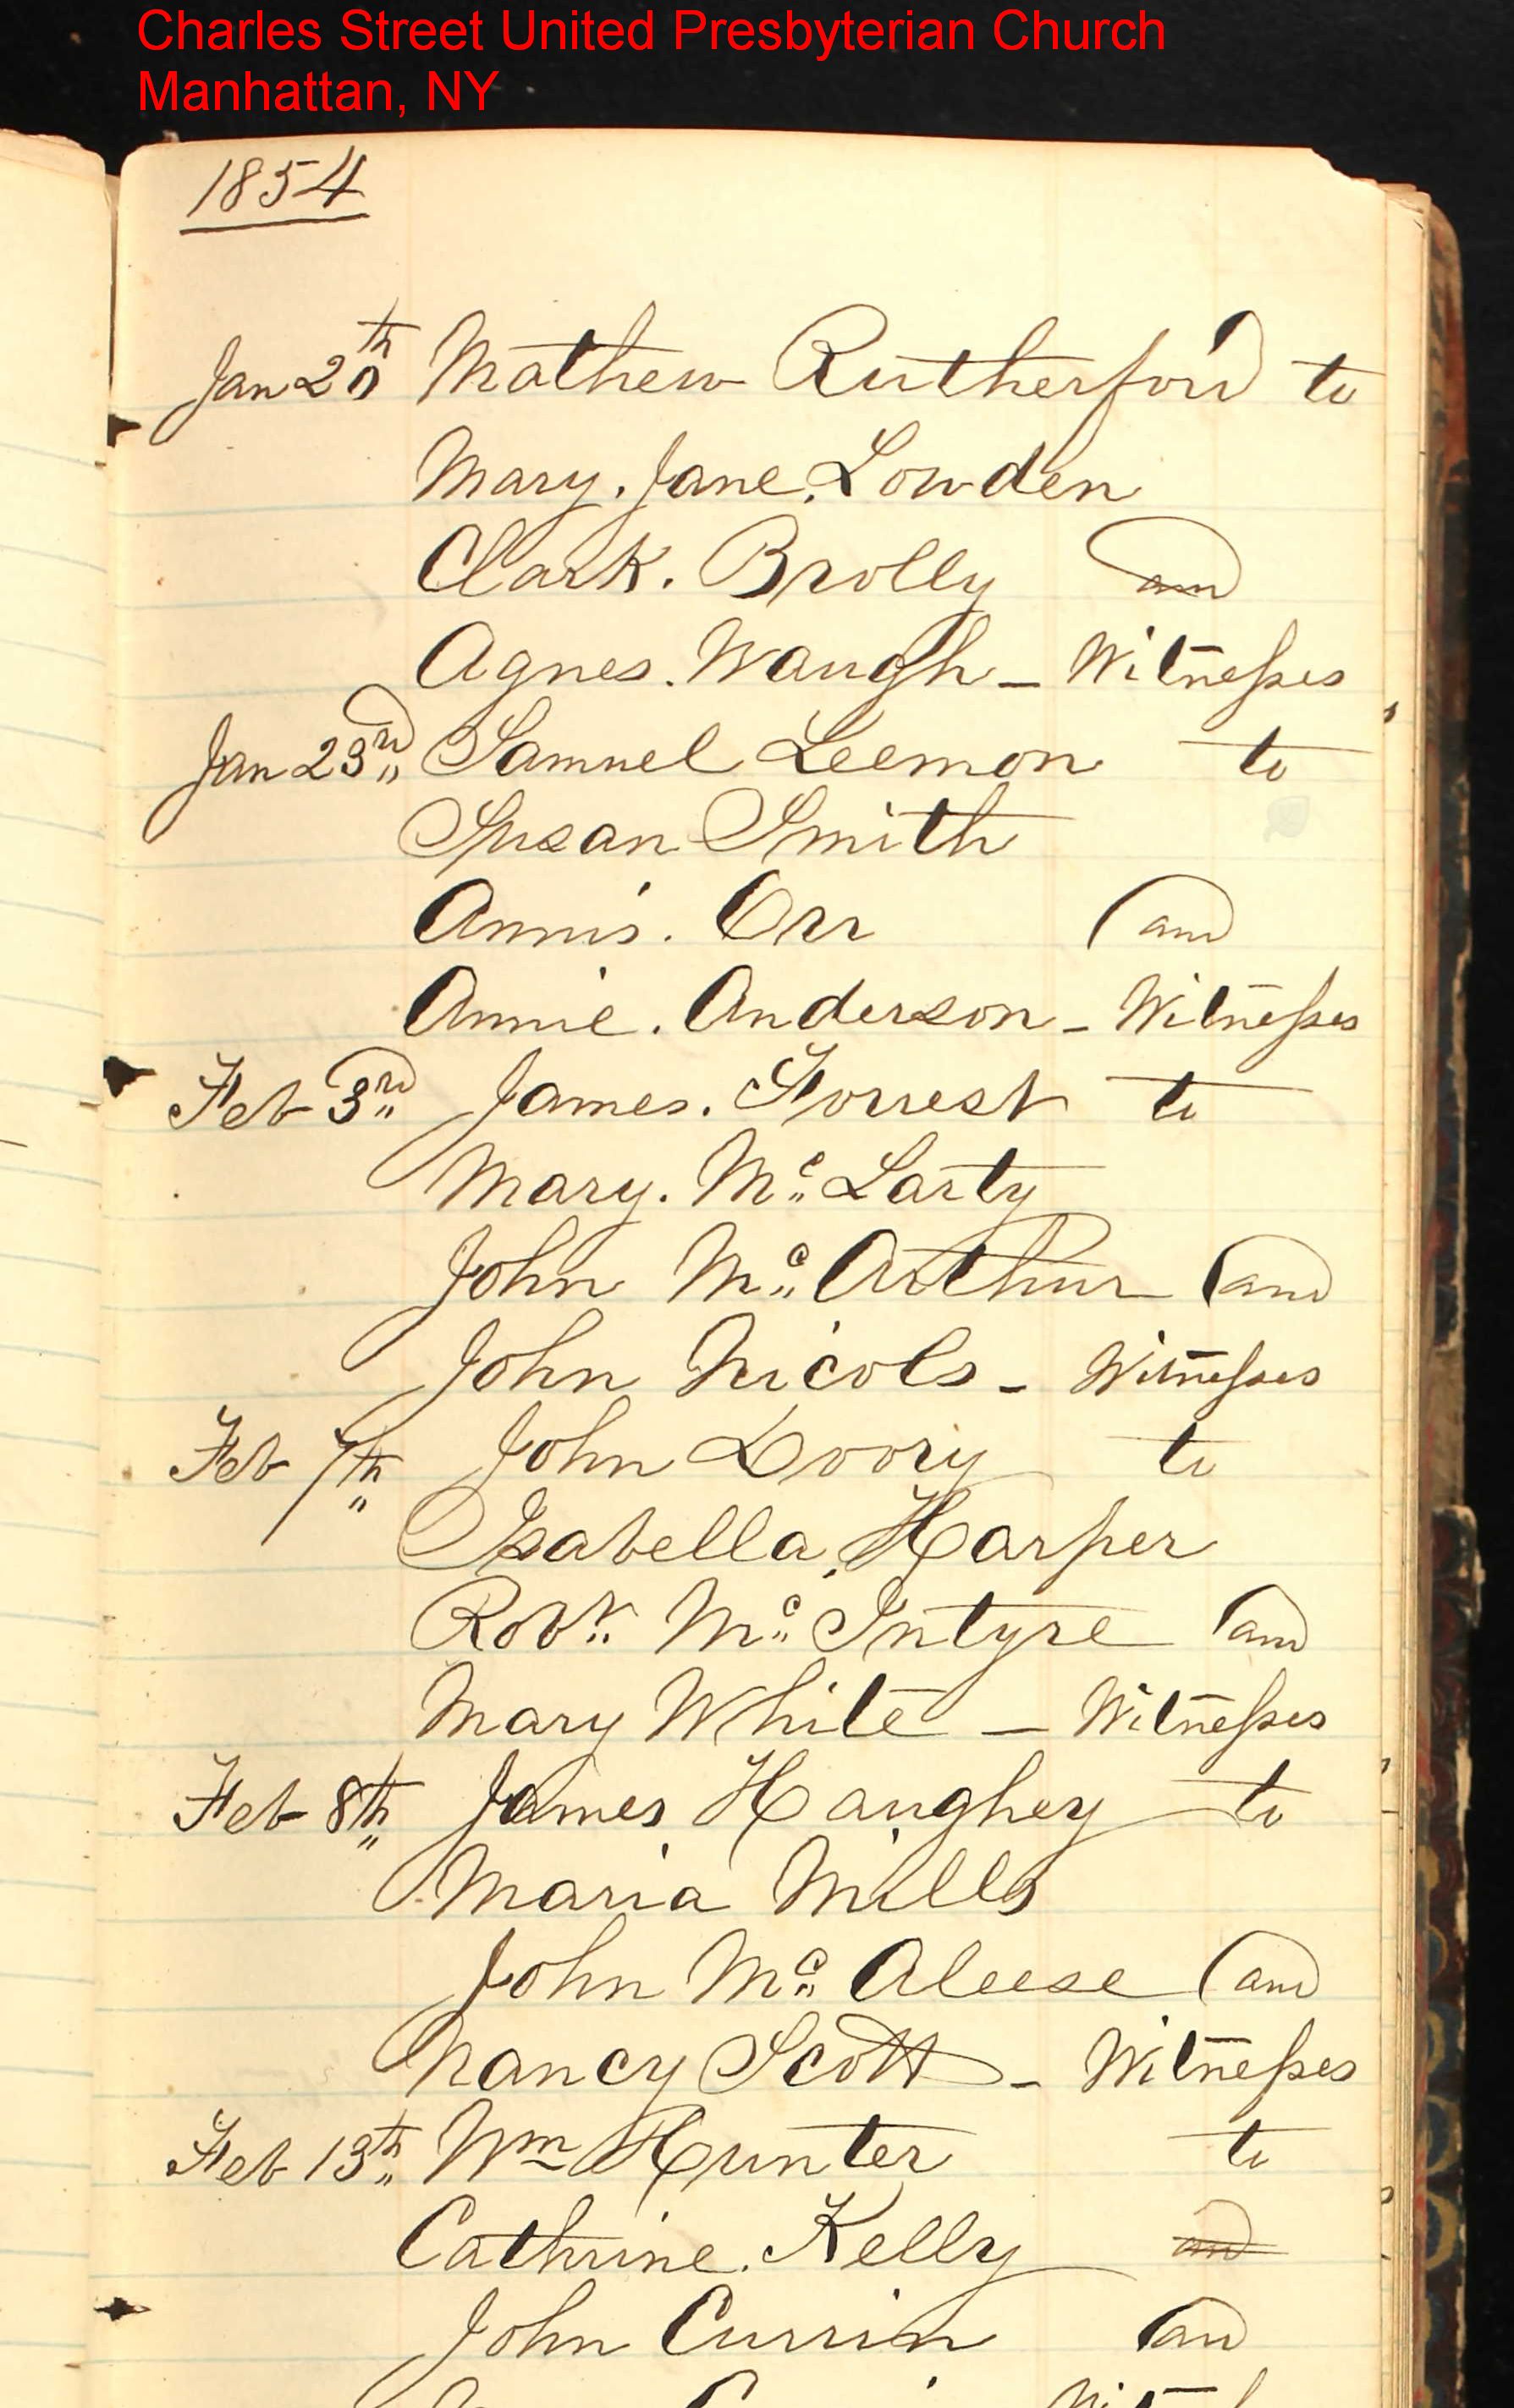 Charles Street United Presbyterian Church
Manhattan, NY
1854
Jan 20th Mathew Rutherford to
Mary. Jane. Lowden
Clark. Brolly and
Agnes. Waugh - Witnesses
Jan 23rd Samuel Leemon to
Susan Smith
Annis. Orr and
Annie. Anderson - Witnesses
Feb 3rd James. Forrest to
Mary. Mc Larty
John Mc Arthur and
John Nicols - Witnesses
Feb 7th John Doory to
Isabella. Harper
Robt. Mc Intyre and
Mary White - Witnesses
Feb 8th James Haughey to
Maria Mills
John Mc Aleese and
Nancy Scott - Witnesses
Feb 13th Wm Hunter to
Cathrine. Kelly and
John Currin and